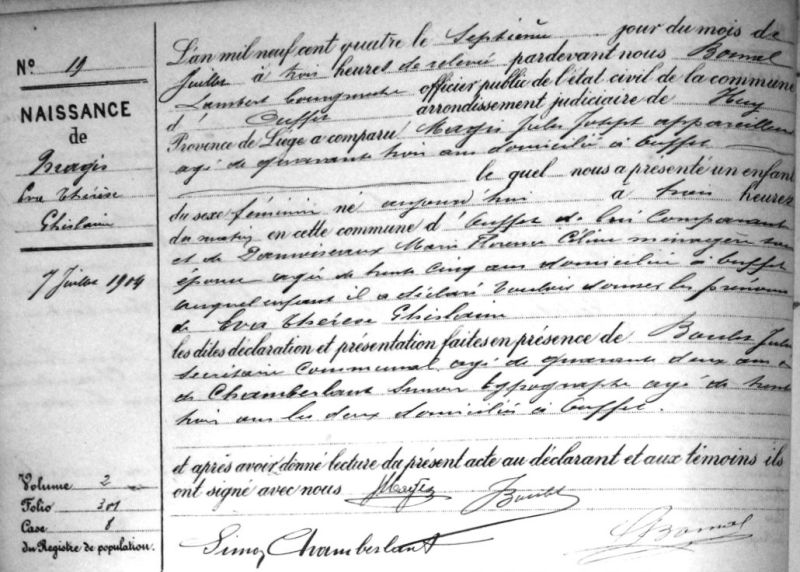 N° 19
NAISSANCE
de
Magis
Eva Thérèse
Ghislaine
7 Juillet 1904
Volume 2
Folio 301
Case 8
du Registre de population.
L'an mil neuf cent quatre le Septième jour du mois de
Juillet à trois heures de relevée pardevant nous Bonnal
Lambert officier public de l'état civil de la commune
d'Ouffet arrondissement judiciaire de Huy
Provence de Liège a comparu Magis Jules Joseph appareilleur
agé de quarante trois ans domicilié à Ouffet
le quel nous a présenté un enfant
du sexe féminin né aujourd'hui à trois heures
du matin en cette commune d'Ouffet de lui Comparant
et de Damoiseaux Marie Florence Céline ménagère son
épouse agée de trente cinq ans domiciliée à Ouffet
auquel enfant il a déclaré vouloir donner les prénoms
de Eva Thérèse Ghislaine
les dites déclaration et présentation faites en présence de Boulet Jules
secrétaire Communal agé de quarante deux ans et
de Chamberlant Simon typographe agé de trente
trois ans les deux domiciliés à Ouffet.
et après avoir donné lecture du présent acte au déclarant et aux témoins ils
ont signé avec nous JMagis JBoulet
Simon Chamberlant LBonnal